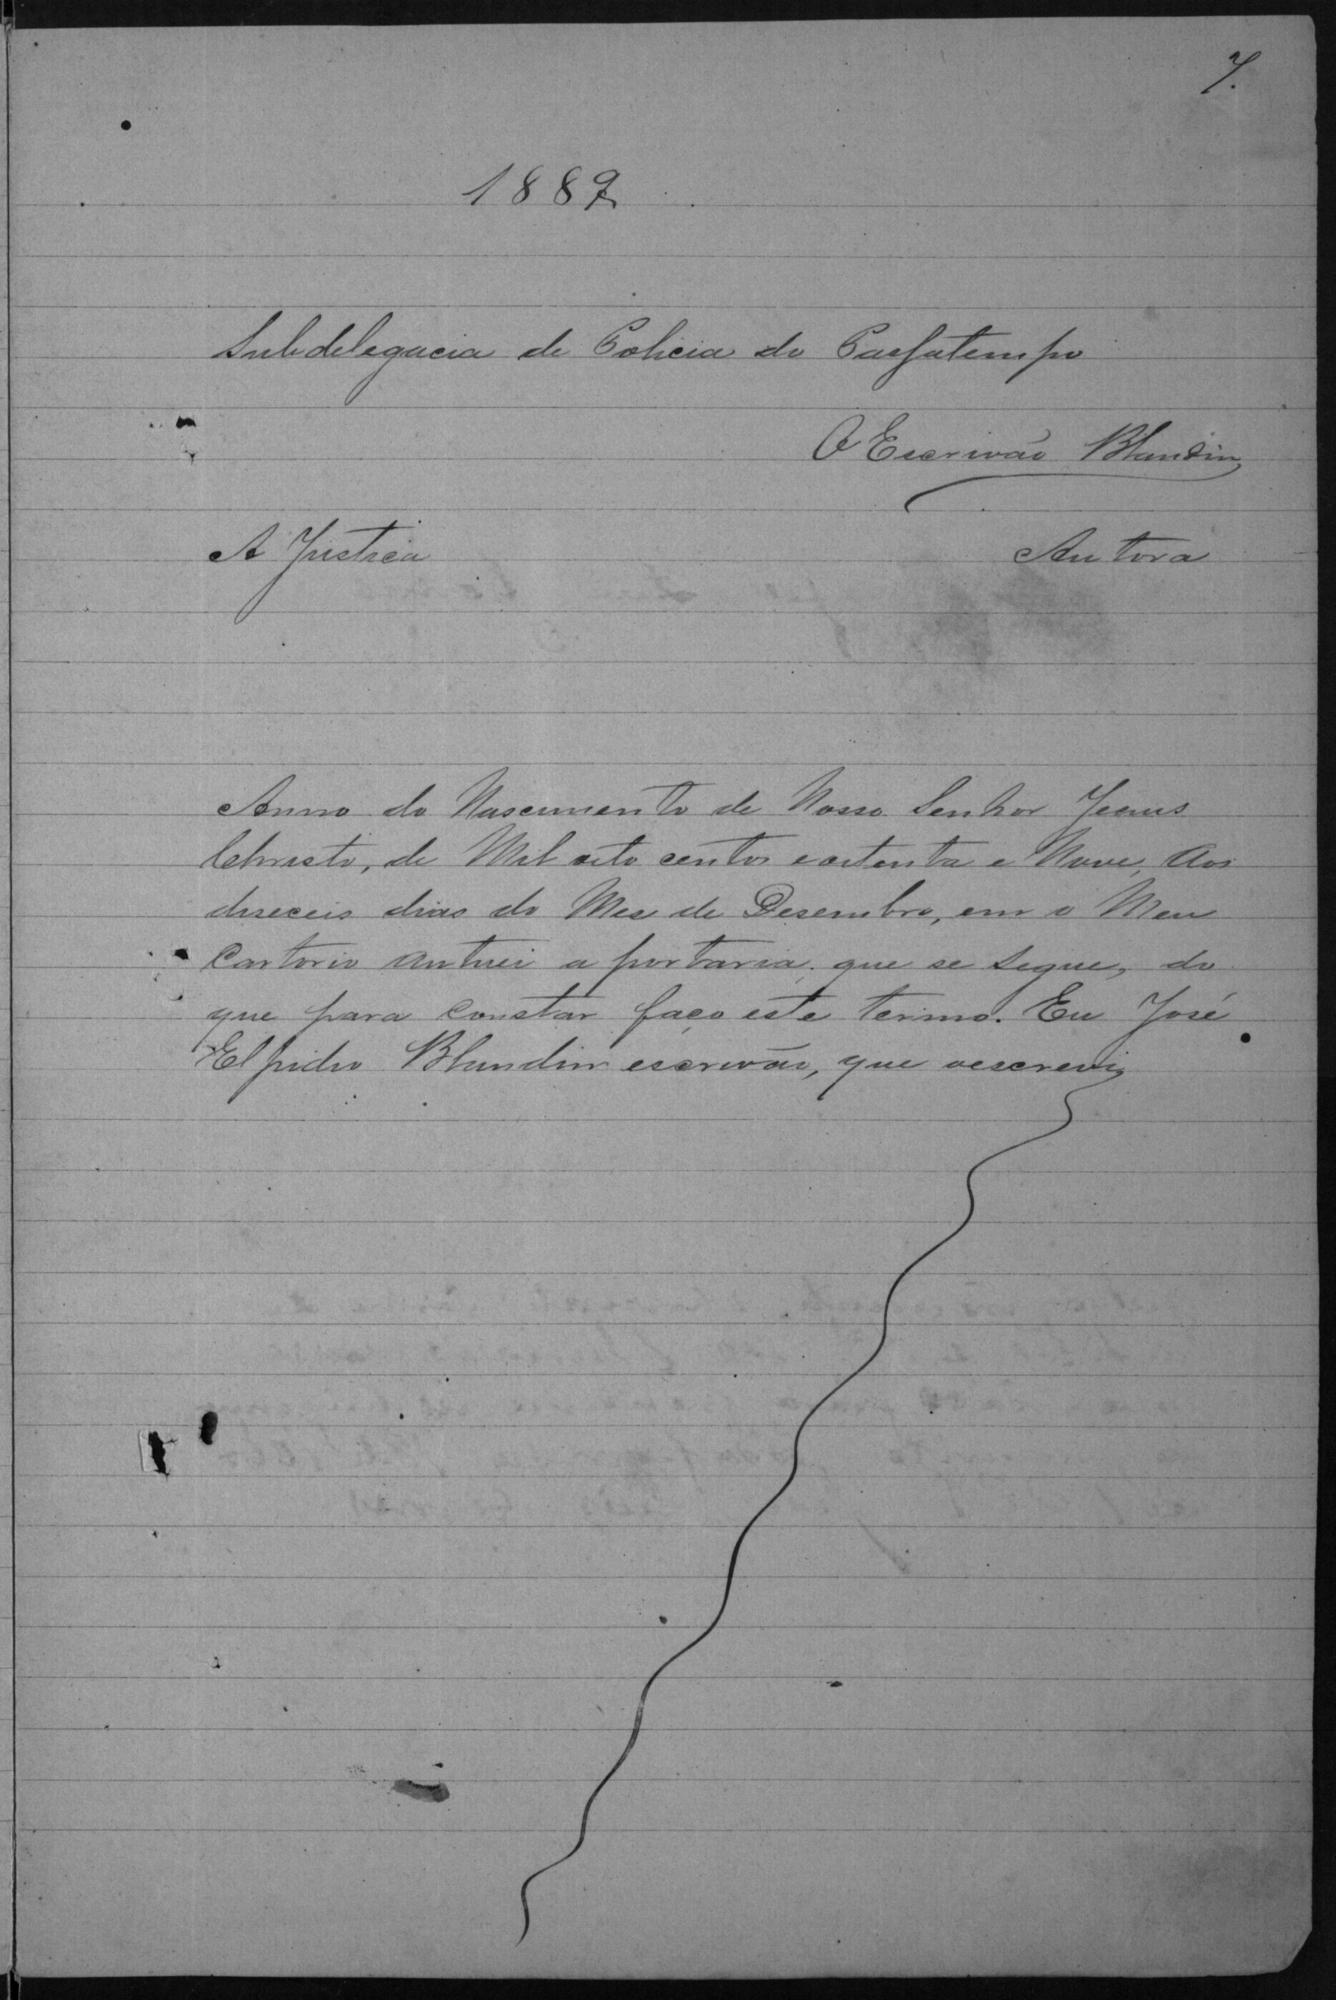 7.
1889
Subdelegacia de Policia do Passatempo
O Escrivão Blandin
A Justica Autora
Anno do Nascimento de Nosso Senhor Jesus
Christo, de Mil oito centos e oitenta e Nove, Aos
diseceis dias do Mes de Desembro, em o Meu
Cartorio Autuei a portaria que se segue, do
que para constar faço este termo. Eu José
Elpidio Blandin escrivão, que oescrevi